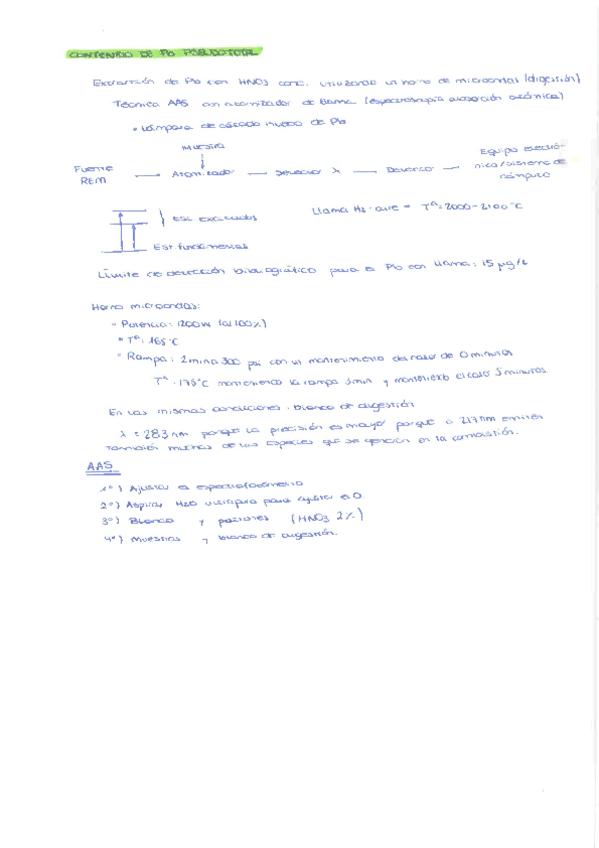 CONTENIDO DE Pb PSEUDOTOTAL
Extracción de Pb con HNO3 conc. utilizando un horno de microondas (digestión)
Técnica AAS con atomizador de llama (espectroscopía absorción atómica)
• Lámpara de cátodo hueco de Pb
Muestra
Fuente REM → Atomizador → Selector λ → Detector — Equipo electrónico/sistema de cómputo
Est. excitados
Llama H2-aire = Tª: 2000-2100°C
Est. fundamental
Límite de detección bibliográfico para el Pb con llama: 15 µg/L
Horno microondas:
• Potencia: 1200W (al 100%)
• Tª: 165°C
• Rampa: 2min a 300 psi con un mantenimiento del calor de 0 minutos
Tª: 175°C manteniendo la rampa 3min y manteniendo el calor 5 minutos
En las mismas condiciones: blanco de digestión
λ = 283 nm porque la precisión es mayor porque a 217 nm emiten
también muchas de las especies que se generan en la combustión.
AAS
1º) Ajustar el espectrofotómetro
2º) Aspirar H2O ultrapura para ajustar el 0
3º) Blanco y patrones (HNO3 2%)
4º) Muestras y blanco de digestión.